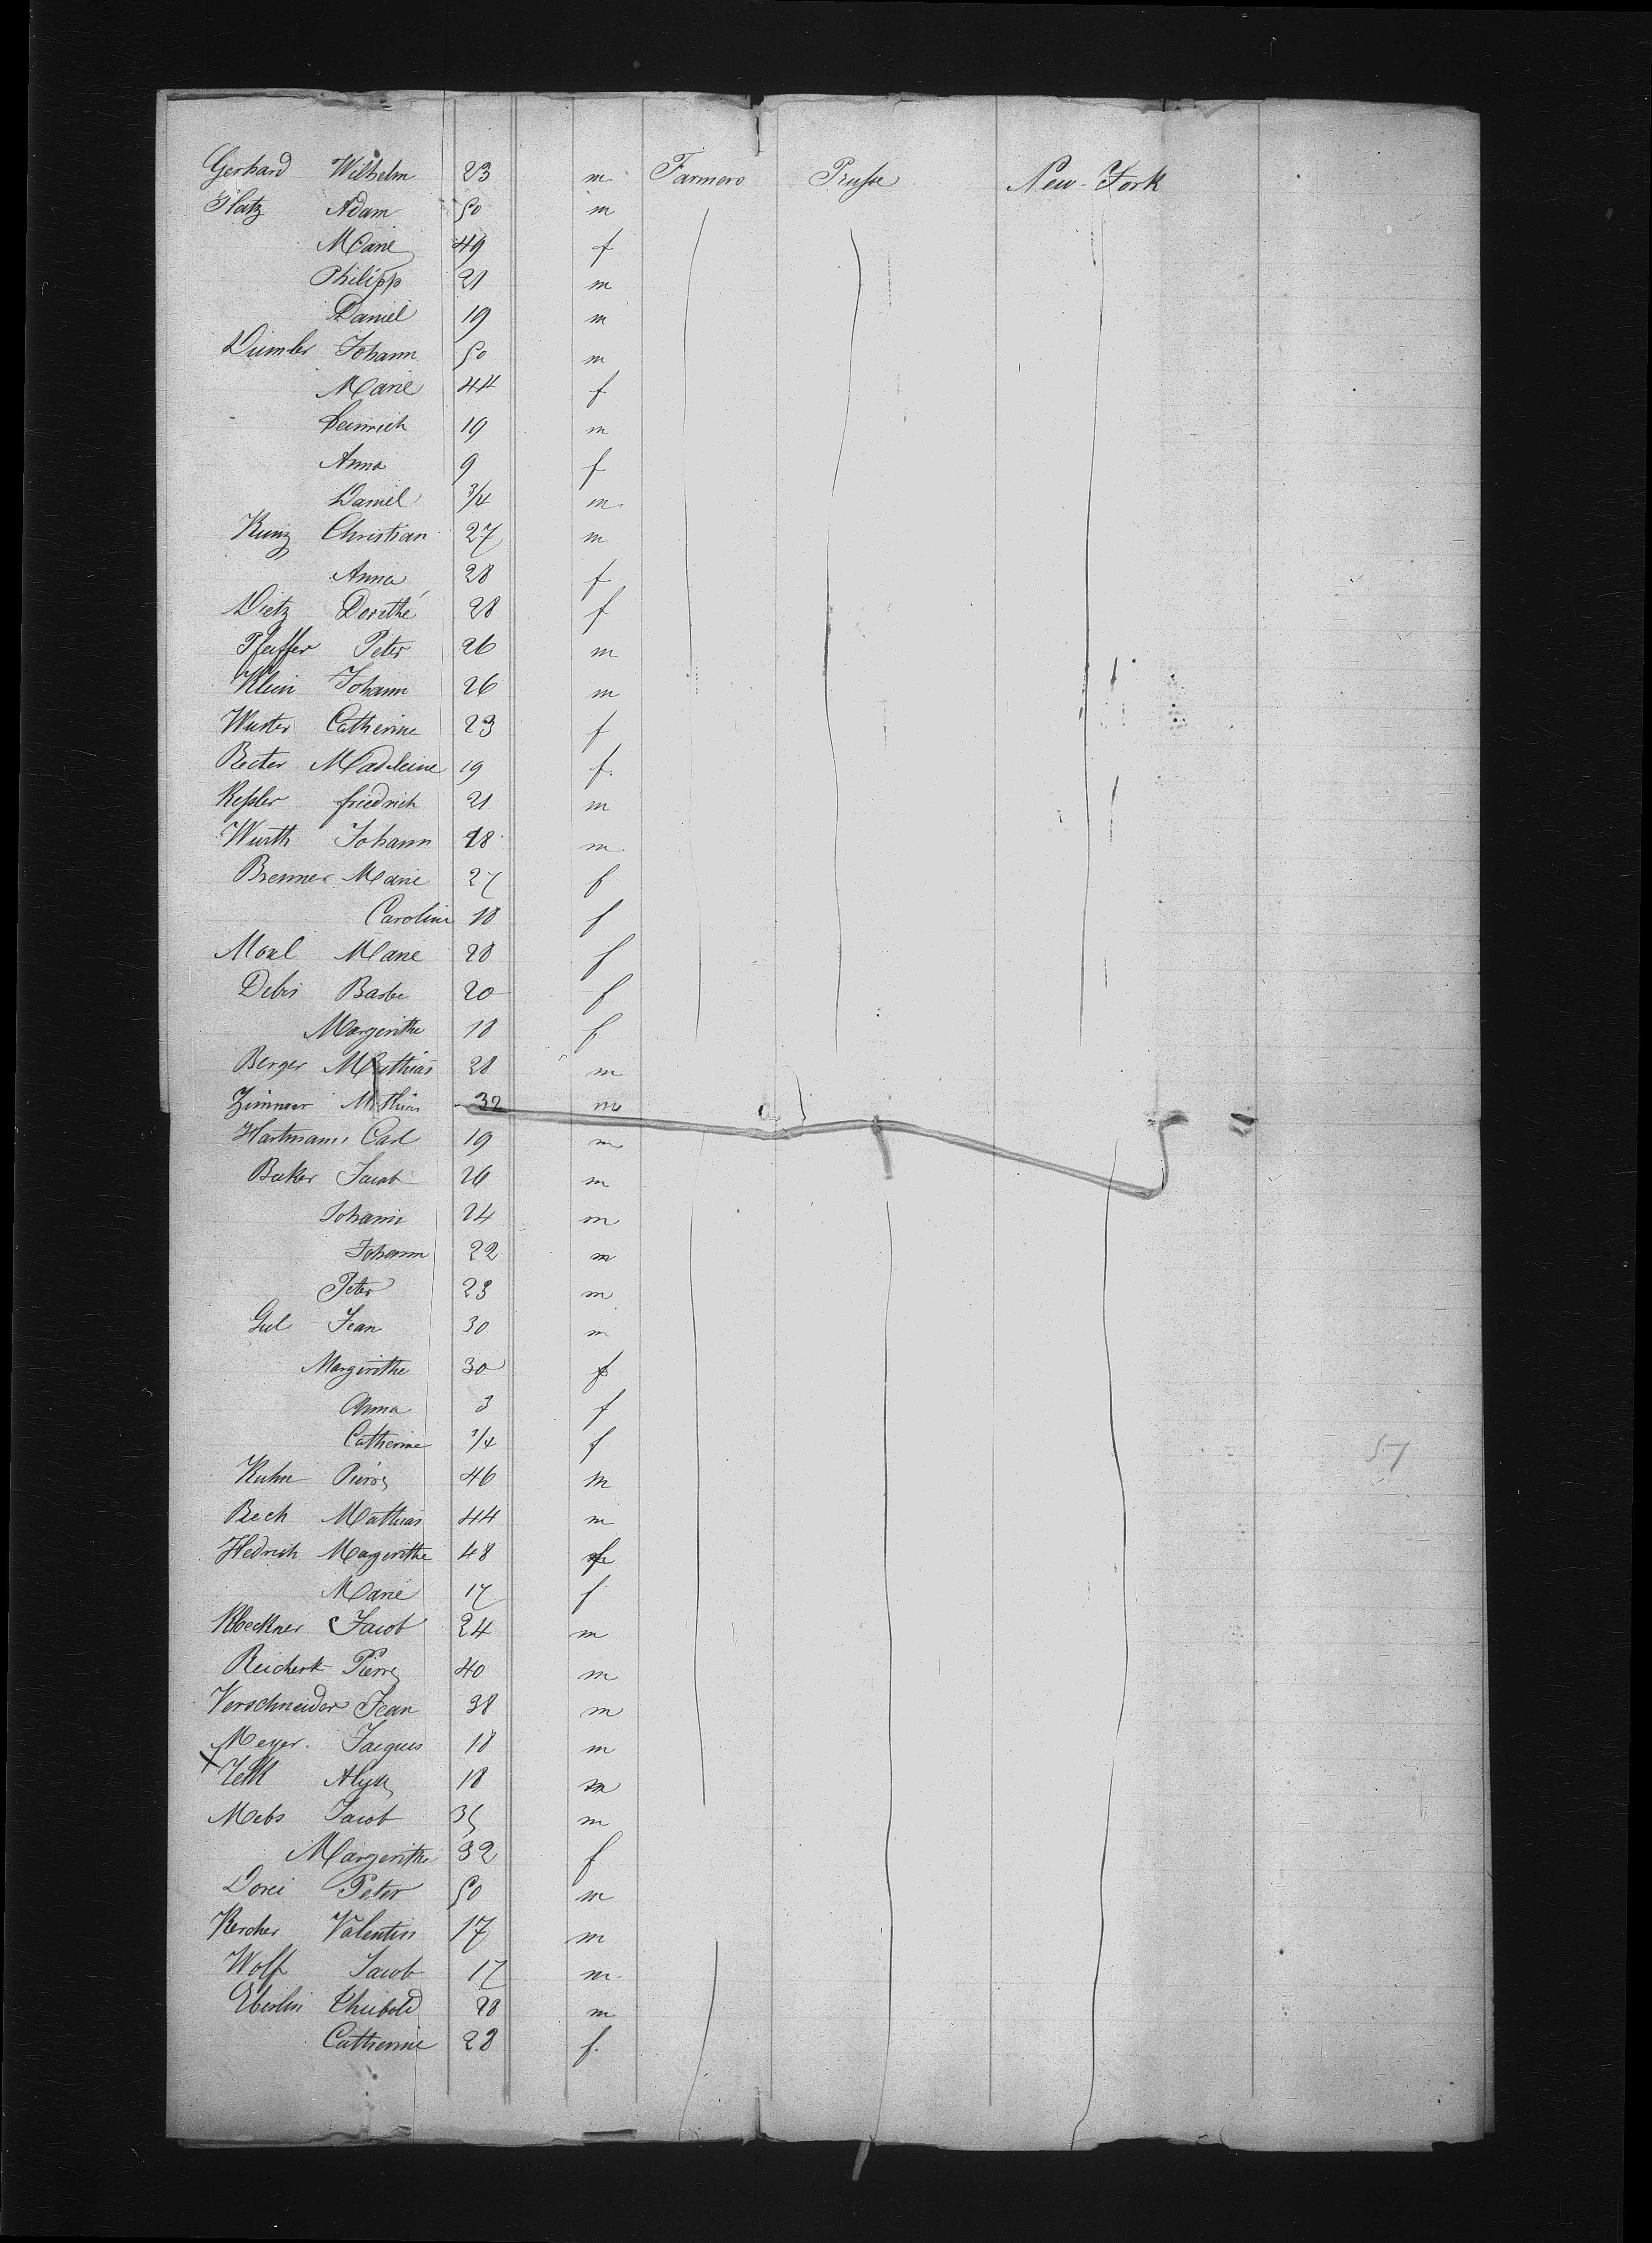 Gerhard Wilhelm 23 m Farmers Prusse New-York
Platz Adam 50 m
Marie 49 f
Philipp 21 m
Daniel 19 m
Diemler Johann 50 m
Marie 44 f
Heinrich 19 m
Anna 9 f
Daniel 3/4 m
Kunz Christian 27 m
Anna 28 f
Dietz Dorethé 28 f
Pfeiffer Peter 26 m
Klein Johann 26 m
Wuster Catherine 23 f
Recter Madeleine 19 f.
Kessler friedrich 21 m
Wurth Johann 18 m
Brenner Marie 27 f
Caroline 18 f
Marie 28 f
Debes Barbe 20 f
Margerithe 18 f
Berger Mathias 28 m
Zimmer Mathias 32 m
Hartmann Carl 19 m
Baker Jacob 26 m
Johann 24 m
Johann 22 m
Peter 23 m
Jean 30 m
Margerithe 30 f
Anna 3 f
Catherine 3/4 f
Kuhn Pierre 46 m
Bech Mathias 44 m
Hedrich Margerithe 48 f
Marie 17 f
Kloeckner Jacob 24 m
Reichert Pierre 40 m
Verschneider Jean 38 m
Meyer. Jacques 18 m
x 18 m
Mebs Jacob 35 m
Margerithe 32 f
Peter 50 m
Kercher Valentin 17 m
Wolf Jacob 17 m
Eberlin Theibold 28 m
Catherine 28 f.
57